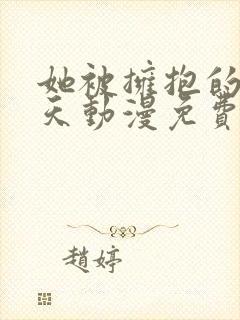 她被擁抱的
天動漫免費
趙婷